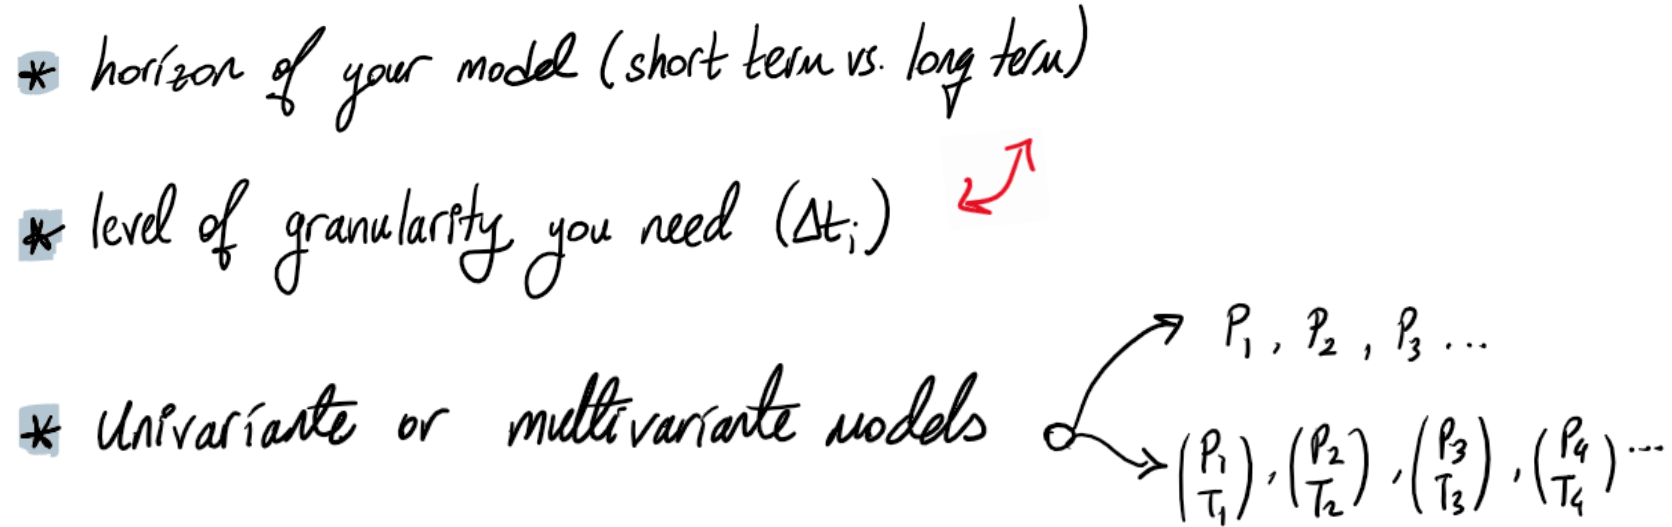 * horizon of your model (short term vs. long term)
* level of granularity you need (Δtᵢ)
P₁, P₂, P₃ ...
* Univariante or multivariante models
(P₁ T₁), (P₂ T₂), (P₃ T₃), (P₄ T₄) ...